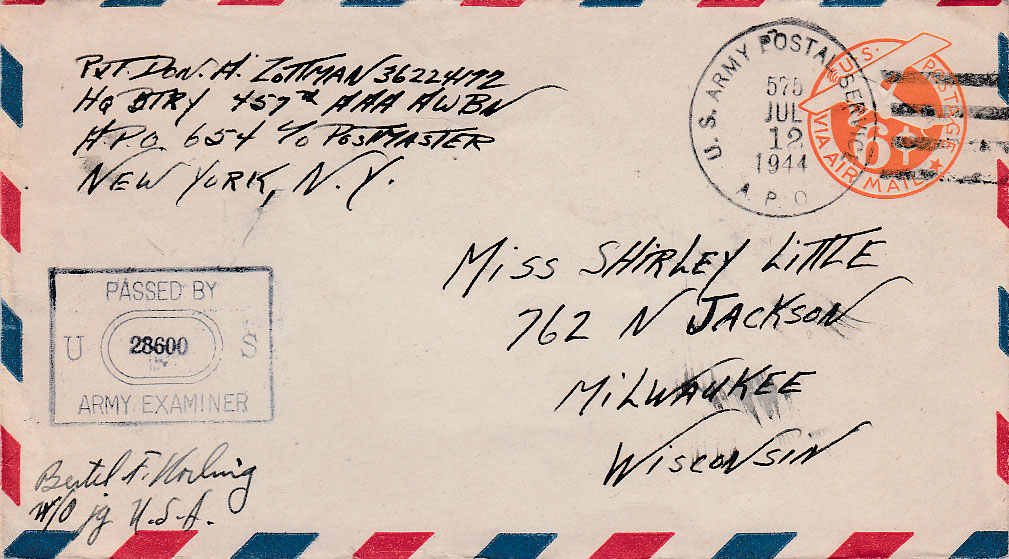 Pvt. Don. A. Zottman 36224172
HQ BTRY 457th AAA AWBN
A.P.O. 654 c/o Postmaster
New York, N.Y.
U.S. ARMY POSTAL SERVICE
575
JUL
12
1944
A.P.O
U.S. POSTAGE
6¢
VIA AIR MAIL
Miss Shirley Little
762 N Jackson
Milwaukee
Wisconsin
PASSED BY
U 28600 S
ARMY EXAMINER
Bertel F.
W/O jg U.S.A.